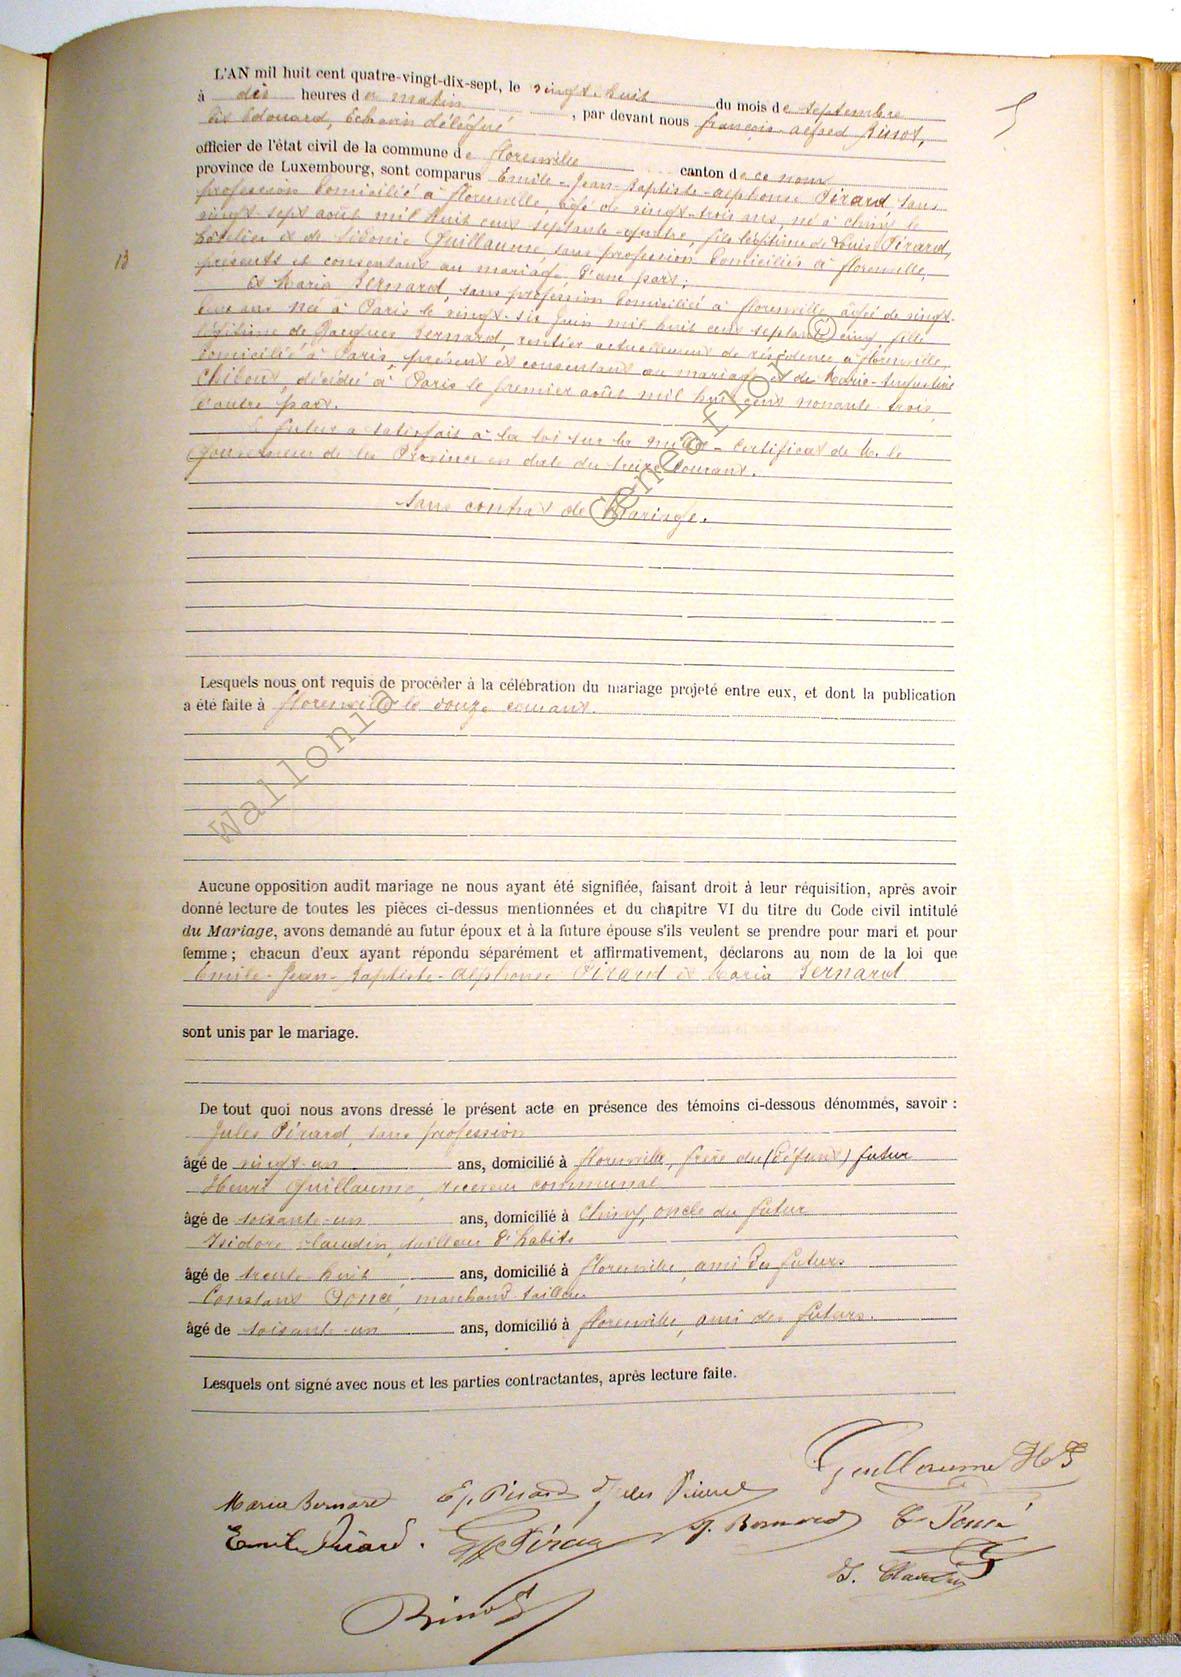 L'AN mil huit cent quatre-vingt-dix-sept, le vingt-huit du mois de septembre
à dix heures du matin, par devant nous françois-alfred Binot,
dit Edouard, Echevin délégué
officier de l'état civil de la commune de florenville canton de ce nom
province de Luxembourg, sont comparus Emile-Jean-Baptiste-alphonse Pirard, sans
profession domicilié à florenville âgé de vingt-trois ans, né à chiny le
vingt-sept août mil huit cent septante-quatre, fils légitime de Louis Pirard,
hôtelier et de Sidonie Guillaume, sans profession domiciliés à florenville,
présents et consentant au mariage, d'une part;
13
Et Maria Bernard, sans profession domiciliée à florenville âgée de vingt-
deux ans née à Paris le vingt-six Juin mil huit cent septante cinq, fille
légitime de Jacques Bernard, rentier actuellement de résidence à florenville,
domicilié à Paris, présent et consentant au mariage et de Marie-Augustine
décédée à Paris le premier août mil huit cent nonante-trois,
d'autre part.
Le futur a satisfait à la loi sur la milice - Certificat de M. le
Gouverneur de la Province en date du treize courant.
Sans contrat de Mariage.
Lesquels nous ont requis de procéder à la célébration du mariage projeté entre eux, et dont la publication
a été faite à florenville le douze courant.
Aucune opposition audit mariage ne nous ayant été signifiée, faisant droit à leur réquisition, après avoir
donné lecture de toutes les pièces ci-dessus mentionnées et du chapitre VI du titre du Code civil intitulé
du Mariage, avons demandé au futur époux et à la future épouse s'ils veulent se prendre pour mari et pour
femme ; chacun d'eux ayant répondu séparément et affirmativement, déclarons au nom de la loi que
Emile-Jean-Baptiste-alphonse Pirard et Maria Bernard
sont unis par le mariage.
De tout quoi nous avons dressé le présent acte en présence des témoins ci-dessous dénommés, savoir :
Jules Pirard, sans profession
âgé de vingt-un ans, domicilié à florenville, frère du (défunt) futur
Henri Guillaume, receveur communal
âgé de soixante-un ans, domicilié à Chiny, oncle du futur
Isidore Claudin, tailleur d'habits
âgé de trente huit ans, domicilié à florenville, ami des futurs
Constant Poncé, marchand tailleur
âgé de soixante-un ans, domicilié à florenville, ami des futurs.
Lesquels ont signé avec nous et les parties contractantes, après lecture faite.
Guillaume
Maria Bernard Pirard Jules Pirard
Emile Pirard. Pirard J. Bernard C. Poncé
Is. Claudin
Binot
Wallonia Geneaflor ©